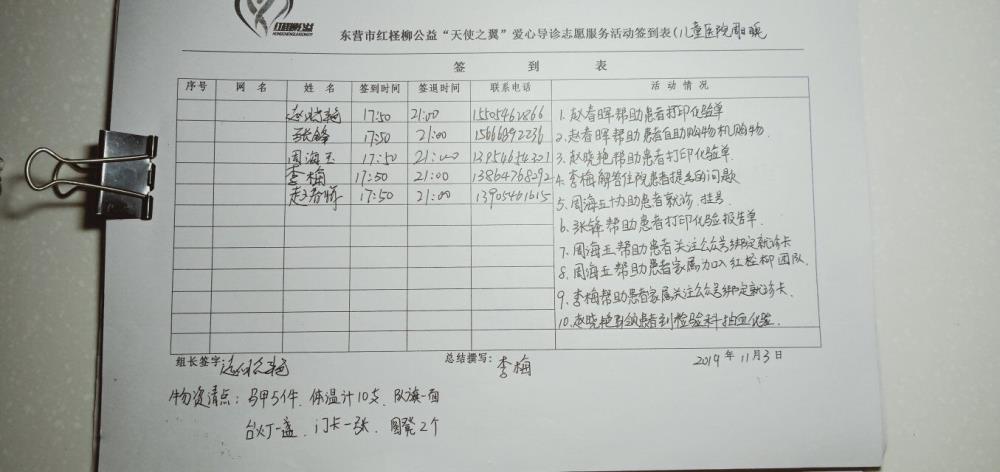 红柽柳公益
HONGCHENGLIUGONGYI
东营市红柽柳公益“天使之翼”爱心导诊志愿服务活动签到表(儿童医院周日晚
签 到 表
序号 网 名 姓 名 签到时间 签退时间 联系电话 活动情况
赵晓艳 17:50 21:00 15505462866
张锋 17:50 21:00 15666392236
周海玉 17:50 21:00 13954654301
李梅 17:50 21:00 13864768292
赵春晖 17:50 21:00 13905461615
1. 赵春晖帮助患者打印化验单
2. 赵春晖帮助患者自助购物机购物.
3. 赵晓艳帮助患者打印化验单.
4. 李梅解答住院患者提出的问题
5. 周海玉协助患者就诊.挂号.
6. 张锋帮助患者打印化验报告单.
7. 周海玉帮助患者关注公众号绑定就诊卡
8. 周海玉帮助患者家属加入红柽柳团队.
9. 李梅帮助患者家属关注公众号绑定就诊卡.
10. 赵晓艳引领患者到检验科抽血化验.
组长签字: 赵晓艳 总结撰写: 李梅 2019年11月3日
物资清点: 马甲5件. 体温计10支. 队旗一面
台灯一盏. 门卡一张. 圆凳2个